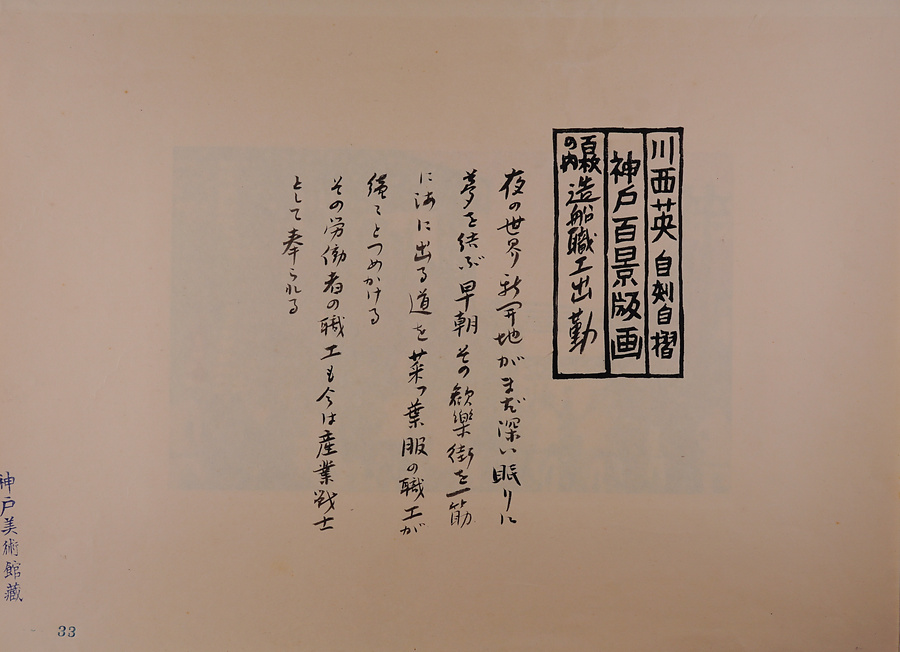 川西英 自刻自摺
神戸百景版画
百枚の内 造船職工出勤
夜の世界新開地がまだ深い眠りに
夢を結ぶ早朝その歓樂街を一筋
に海に出る道を菜っ葉服の職工が
續々とつめかける
その労働者の職工も今は産業戦士
として奉られる
神戸美術館藏
33